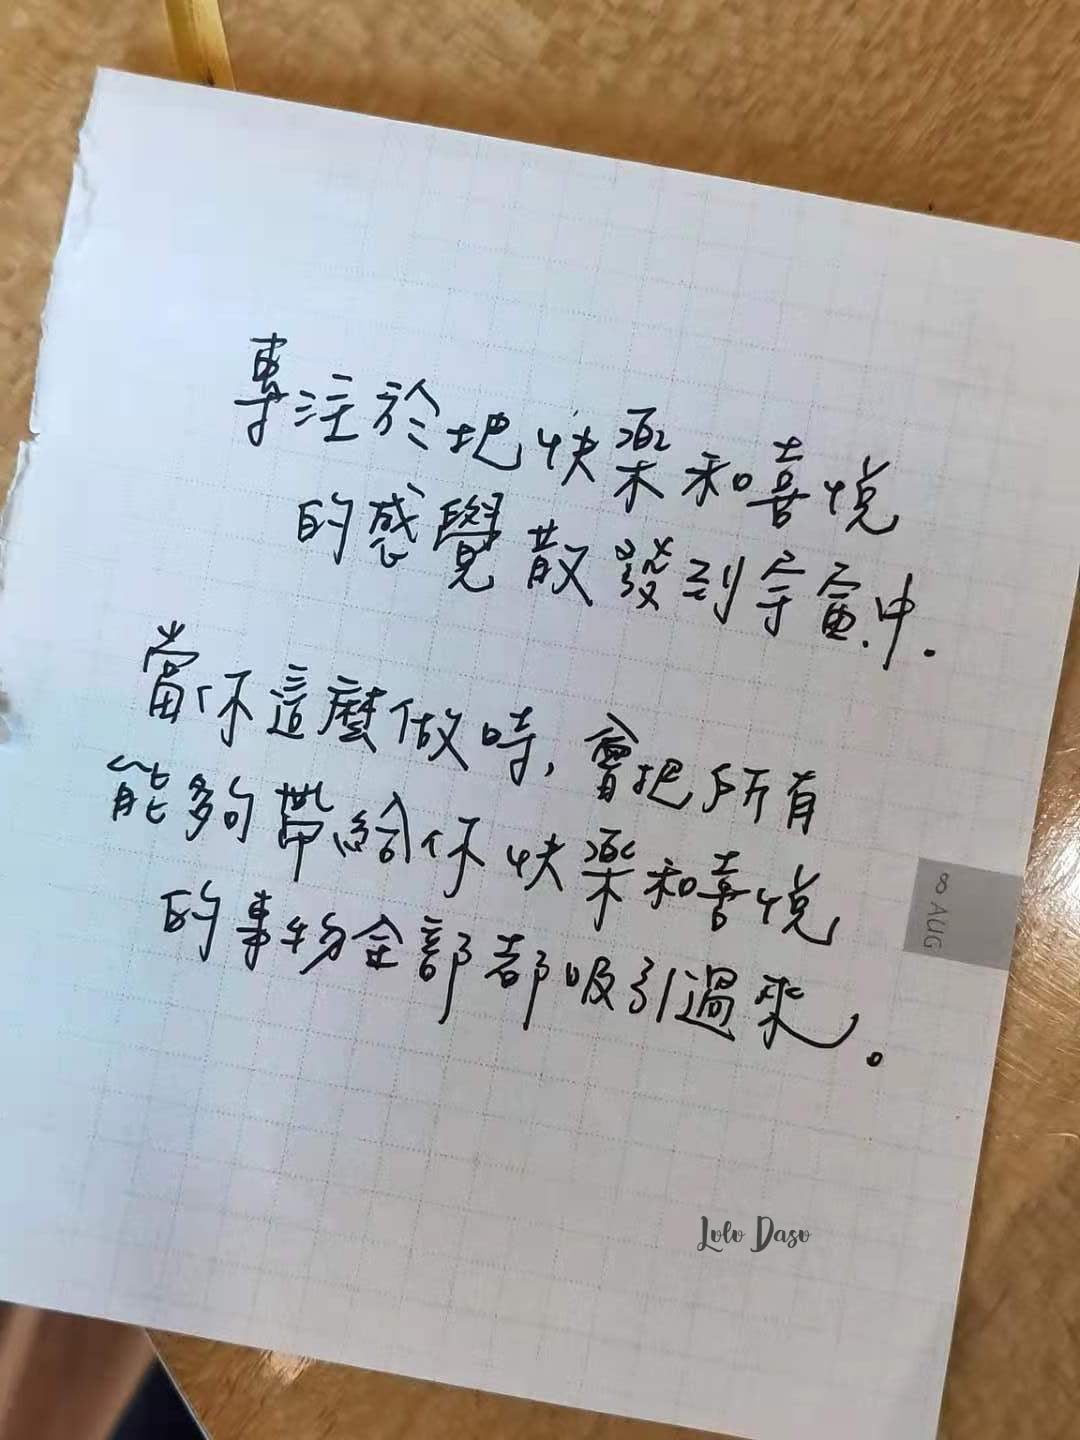 專注於把快樂和喜悅
的感覺散發到宇宙中.
當你這麼做時,會把所有
能夠帶給你快樂和喜悅
的事物全部都吸引過來。
8 AUG
Lulu Dasu